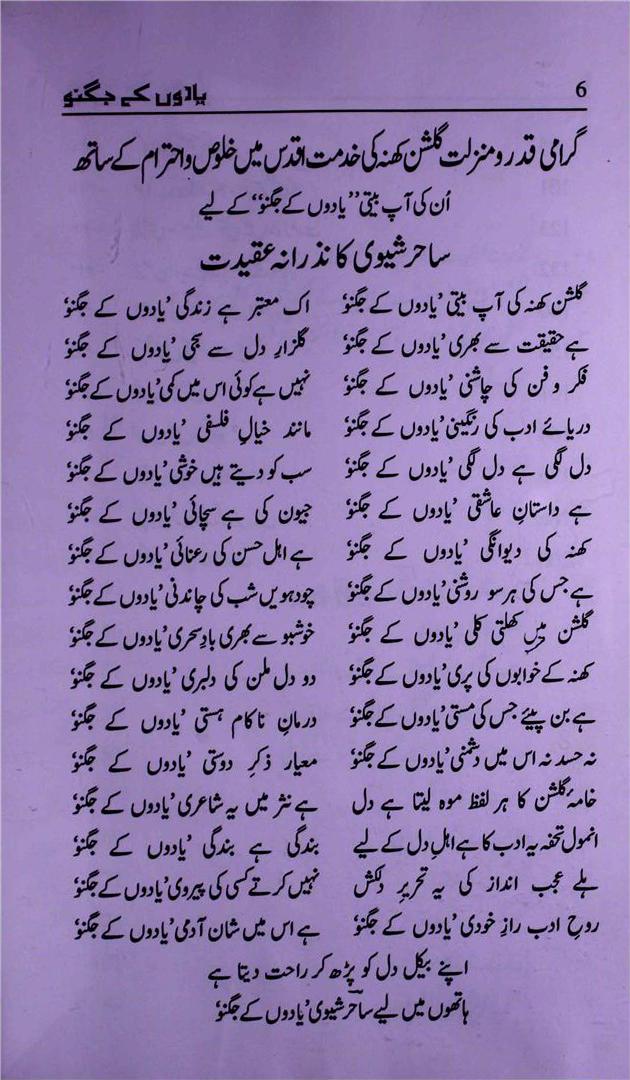 6 یادوں کے جگنو
گرامی قدر و منزلت گلشن کھنہ کی خدمت اقدس میں خلوص و احترام کے ساتھ
اُن کی آپ بیتی ”یادوں کے جگنو“ کے لیے
ساحر شیوی کا نذرانہ عقیدت
گلشن کھنہ کی آپ بیتی ’یادوں کے جگنو‘ اک معتبر ہے زندگی ’یادوں کے جگنو‘
ہے حقیقت سے بھری ’یادوں کے جگنو‘ گلزارِ دل سے سجی ’یادوں کے جگنو‘
فکر و فن کی چاشنی ’یادوں کے جگنو‘ نہیں ہے کوئی اس میں کمی ’یادوں کے جگنو‘
دریائے ادب کی رنگینی ’یادوں کے جگنو‘ مانند خیالِ فلسفی ’یادوں کے جگنو‘
دل لگی ہے دل لگی ’یادوں کے جگنو‘ سب کو دیتے ہیں خوشی ’یادوں کے جگنو‘
ہے داستانِ عاشقی ’یادوں کے جگنو‘ جیون کی ہے سچائی ’یادوں کے جگنو‘
کھنہ کی دیوانگی ’یادوں کے جگنو‘ ہے اہل حسن کی رعنائی ’یادوں کے جگنو‘
ہے جس کی ہر سو روشنی ’یادوں کے جگنو‘ چودھویں شب کی چاندنی ’یادوں کے جگنو‘
گلشن میں کھلتی کلی ’یادوں کے جگنو‘ خوشبو سے بھری بادِ سحری ’یادوں کے جگنو‘
کھنہ کے خوابوں کی پری ’یادوں کے جگنو‘ دو دل ملن کی دلبری ’یادوں کے جگنو‘
ہے بن پیئے جس کی مستی ’یادوں کے جگنو‘ درمانِ ناکام ہستی ’یادوں کے جگنو‘
نہ حسد نہ اس میں دشمنی ’یادوں کے جگنو‘ معیار ذکرِ دوستی ’یادوں کے جگنو‘
خامۂ گلشن کا ہر لفظ موہ لیتا ہے دل ہے نثر میں یہ شاعری ’یادوں کے جگنو‘
انمول تحفہ یہ ادب کا ہے اہلِ دل کے لیے بندگی ہے بندگی ’یادوں کے جگنو‘
ہلے عجب انداز کی یہ تحریرِ دلکش نہیں کرتے کسی کی پیروی ’یادوں کے جگنو‘
روحِ ادب رازِ خودی ’یادوں کے جگنو‘ ہے اس میں شان آدمی ’یادوں کے جگنو‘
اپنے بیکل دل کو پڑھ کر راحت دیتا ہے
ہاتھوں میں لیے ساحر شیوی ’یادوں کے جگنو‘